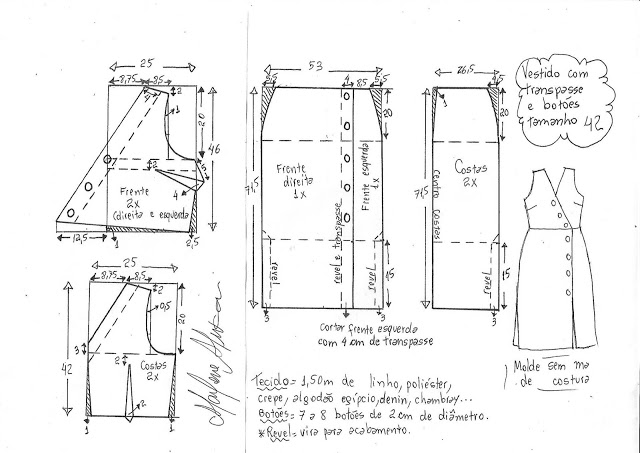 25
8,75
8,5
2
4
1
20
46
2
3
4
Frente
2x
(direita e esquerda)
12,5
1
2,5
25
8,75
8,5
2
0,5
20
3
42
2
Costas
2x
2
1
1
53
5,5
4
5,5
20
71,5
Frente
direita
1x
revel e transpasse
Frente esquerda
1x
revel
revel
15
3
3
Cortar frente esquerda
com 4 cm de transpasse
26,5
4,5
1
20
71,5
Costas
2x
centro costas
revel
15
3
Vestido com
transpasse
e botões
tamanho 42
Molde sem ma
de costura
Tecido = 1,50m de linho, poliéster,
crepe, algodão egípcio, denin, chambray...
Botões = 7 a 8 botões de 2 cm de diâmetro.
*Revel = vira para acabamento.